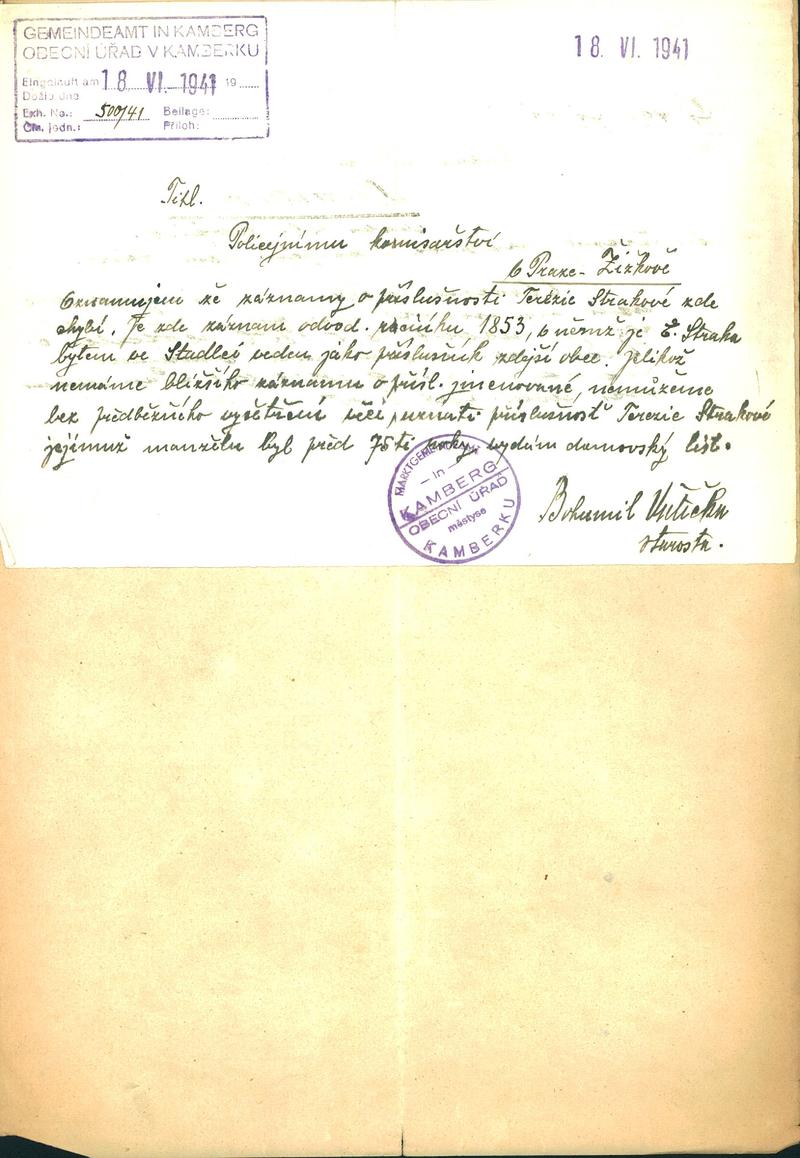 GEMEINDEAMT IN KAMBERG
OBECNÍ ÚŘAD V KAMBERKU
Eingelauft am 18 VI. 1941 19
Došlo dne
Exh. No.: 500/41 Beilage:
Čís. jedn.: Příloh:
18. VI. 1941
Titl.
Policejnímu komisařství
v Praze - Žižkově
Oznamujem že záznamy o příslušnosti Terezie Strakové zde
chybí. Je zde záznam odvod. ročníku 1853, v němž je E. Straka
bytem ve Stadlci veden jako příslušník zdejší obce. Jelikož
nemáme bližšího záznamu o přísl. jmenované, nemůžeme
bez předběžného vyšetření věci uznati příslušnost Terezie Strakové
jejímuž manželu byl před 75ti roky vydán domovský list.
MARKTGEMEINDEAMT
- in -
KAMBERG
OBECNÍ ÚŘAD
městyse
KAMBERKU
Bohumil
starosta.